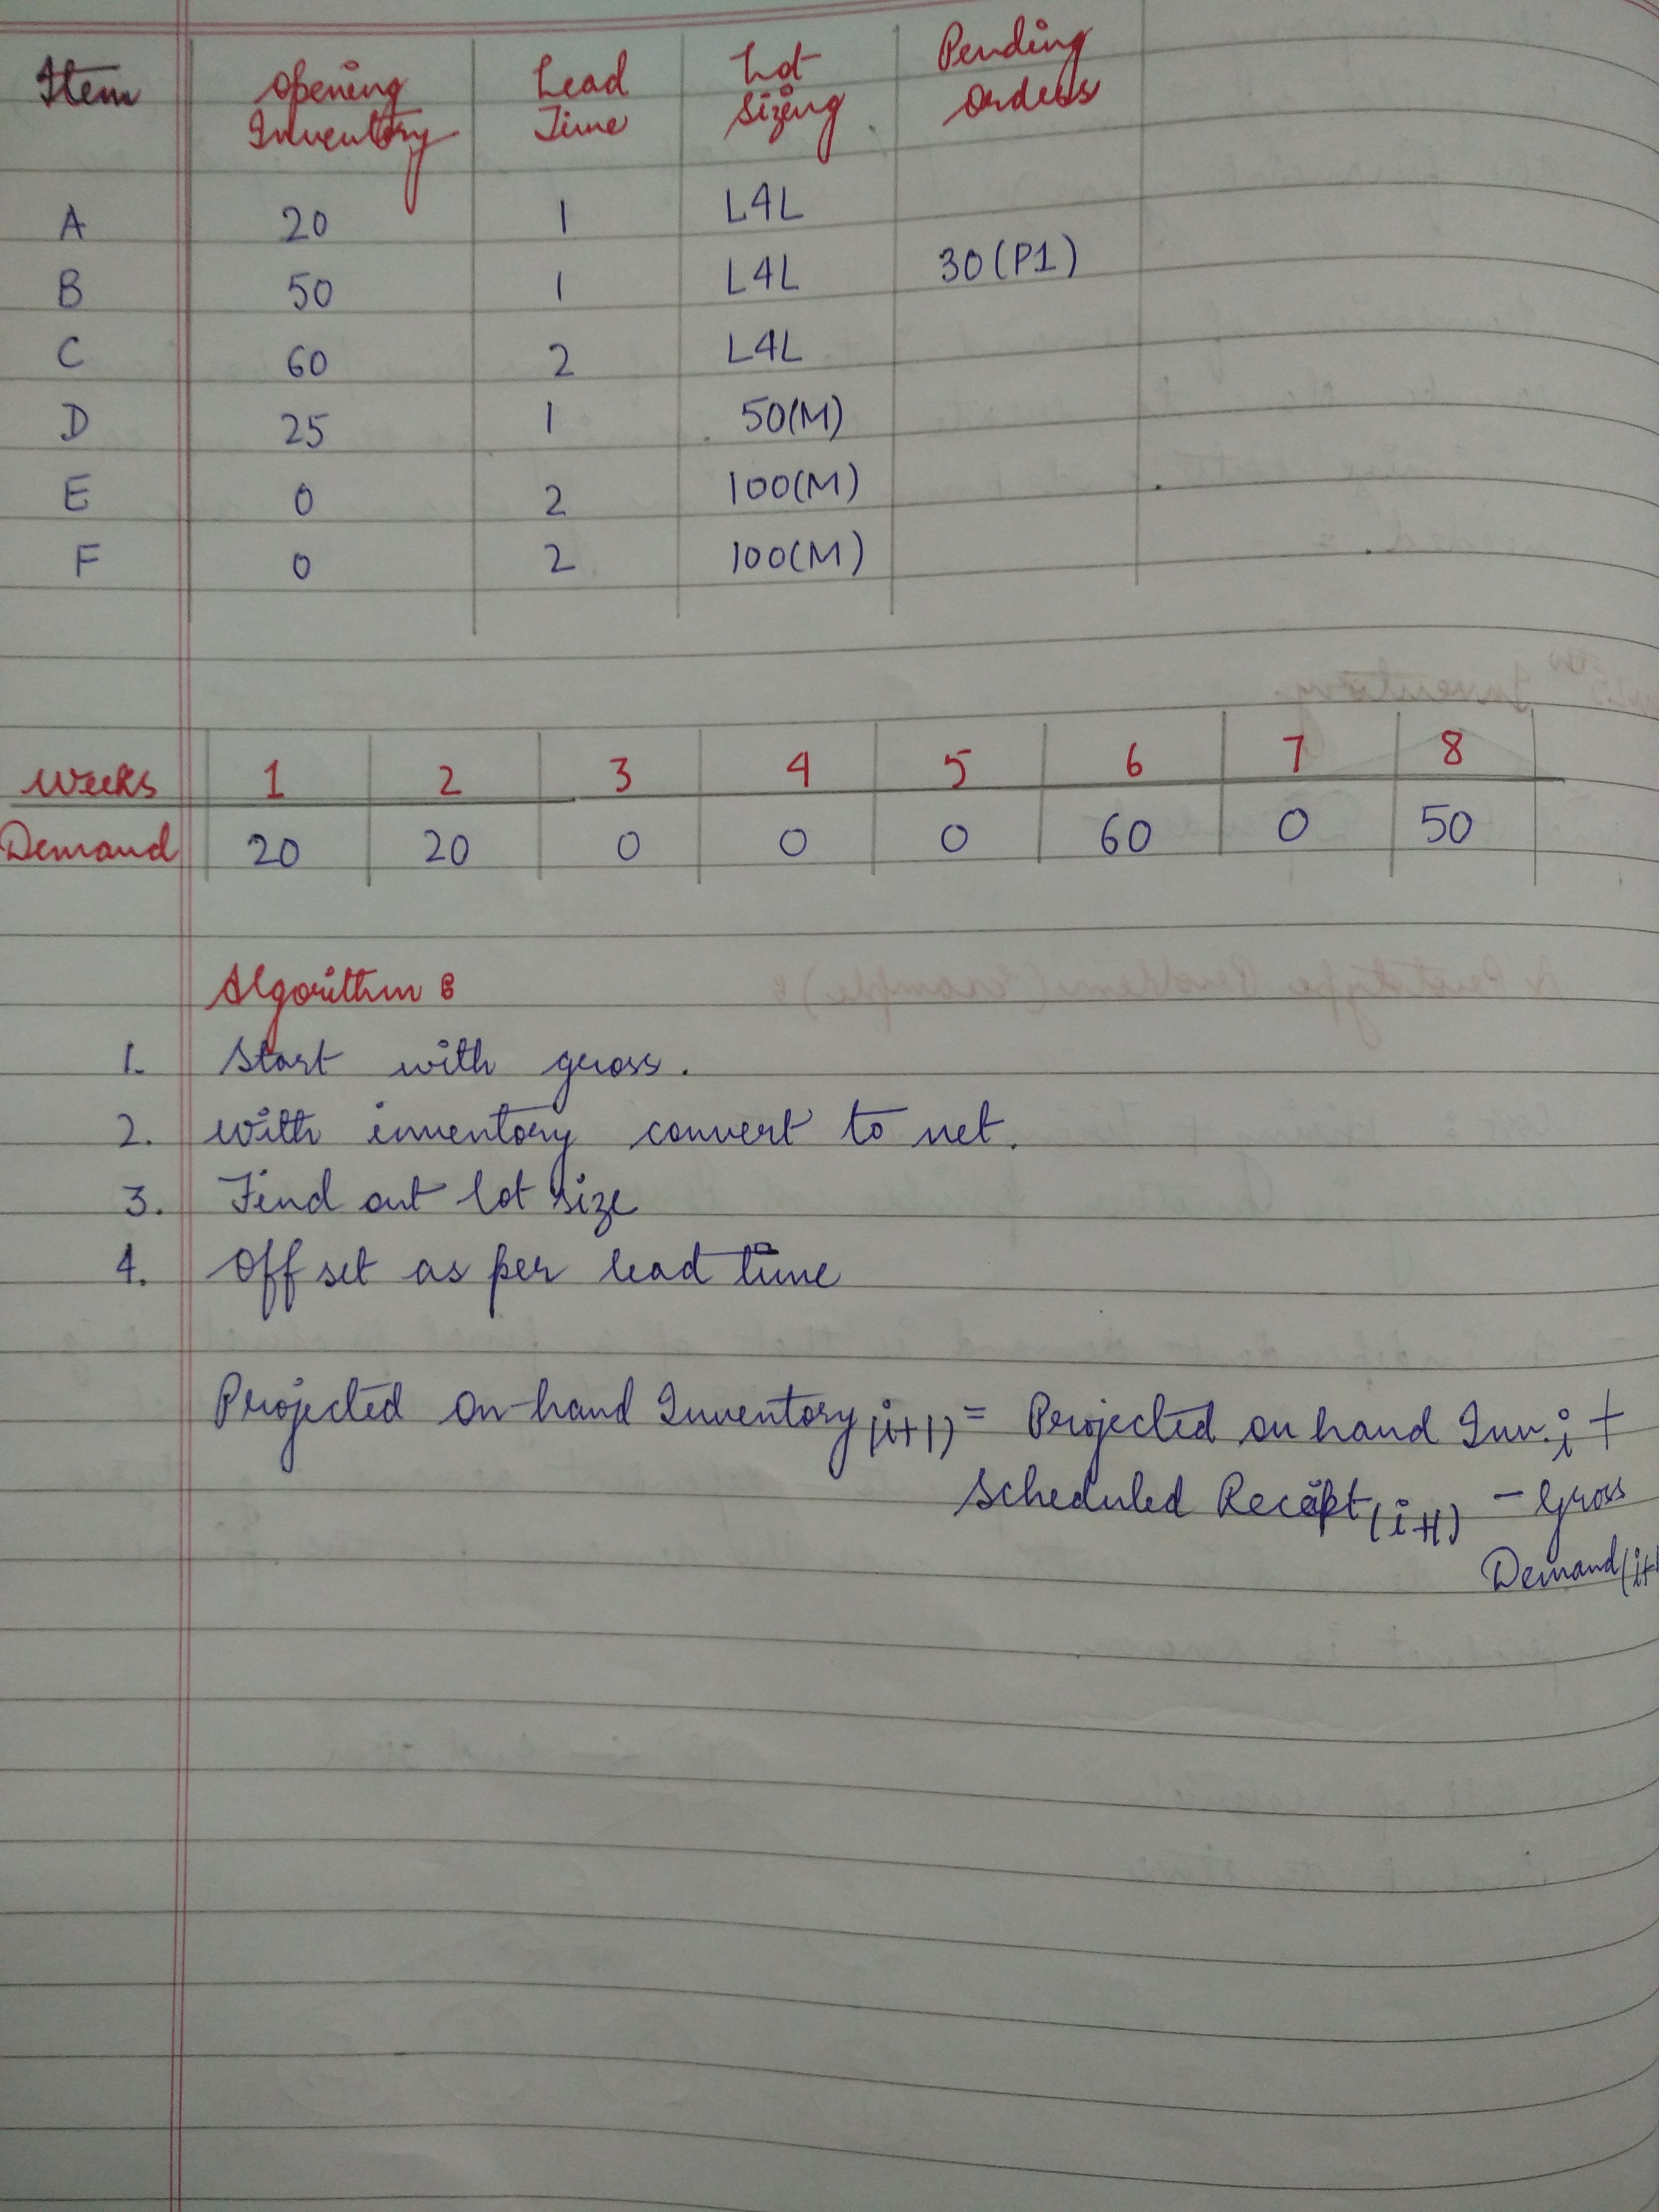 Item Opening Inventory Lead Time Lot Sizing Pending Orders
A 20 1 L4L
B 50 1 L4L 30(P1)
C 60 2 L4L
D 25 1 50(M)
E 0 2 100(M)
F 0 2 100(M)
Weeks 1 2 3 4 5 6 7 8
Demand 20 20 0 0 0 60 0 50
Algorithm :
1. Start with gross.
2. With inventory convert to net.
3. Find out lot size
4. Off set as per lead time
Projected on-hand Inventory(i+1) = Projected on hand Inv.i +
Scheduled Receipt(i+1) - Gross
Demand(i+1